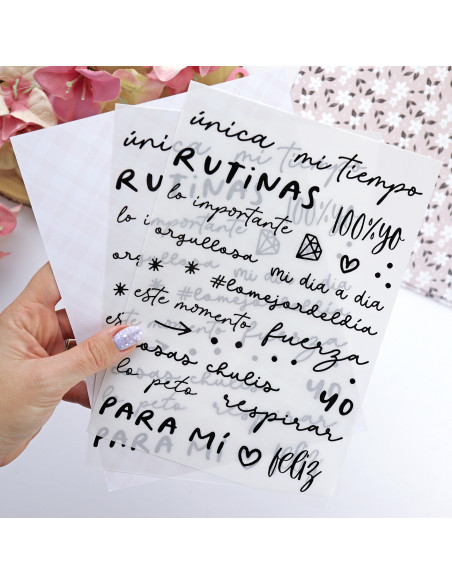 única mi tiempo
RUTINAS
lo importante 100%yo
orgullosa
mi dia a dia
#lomejordeldía
este momento fuerza
cosas chulis yo
lo peto respirar
PARA MÍ feliz